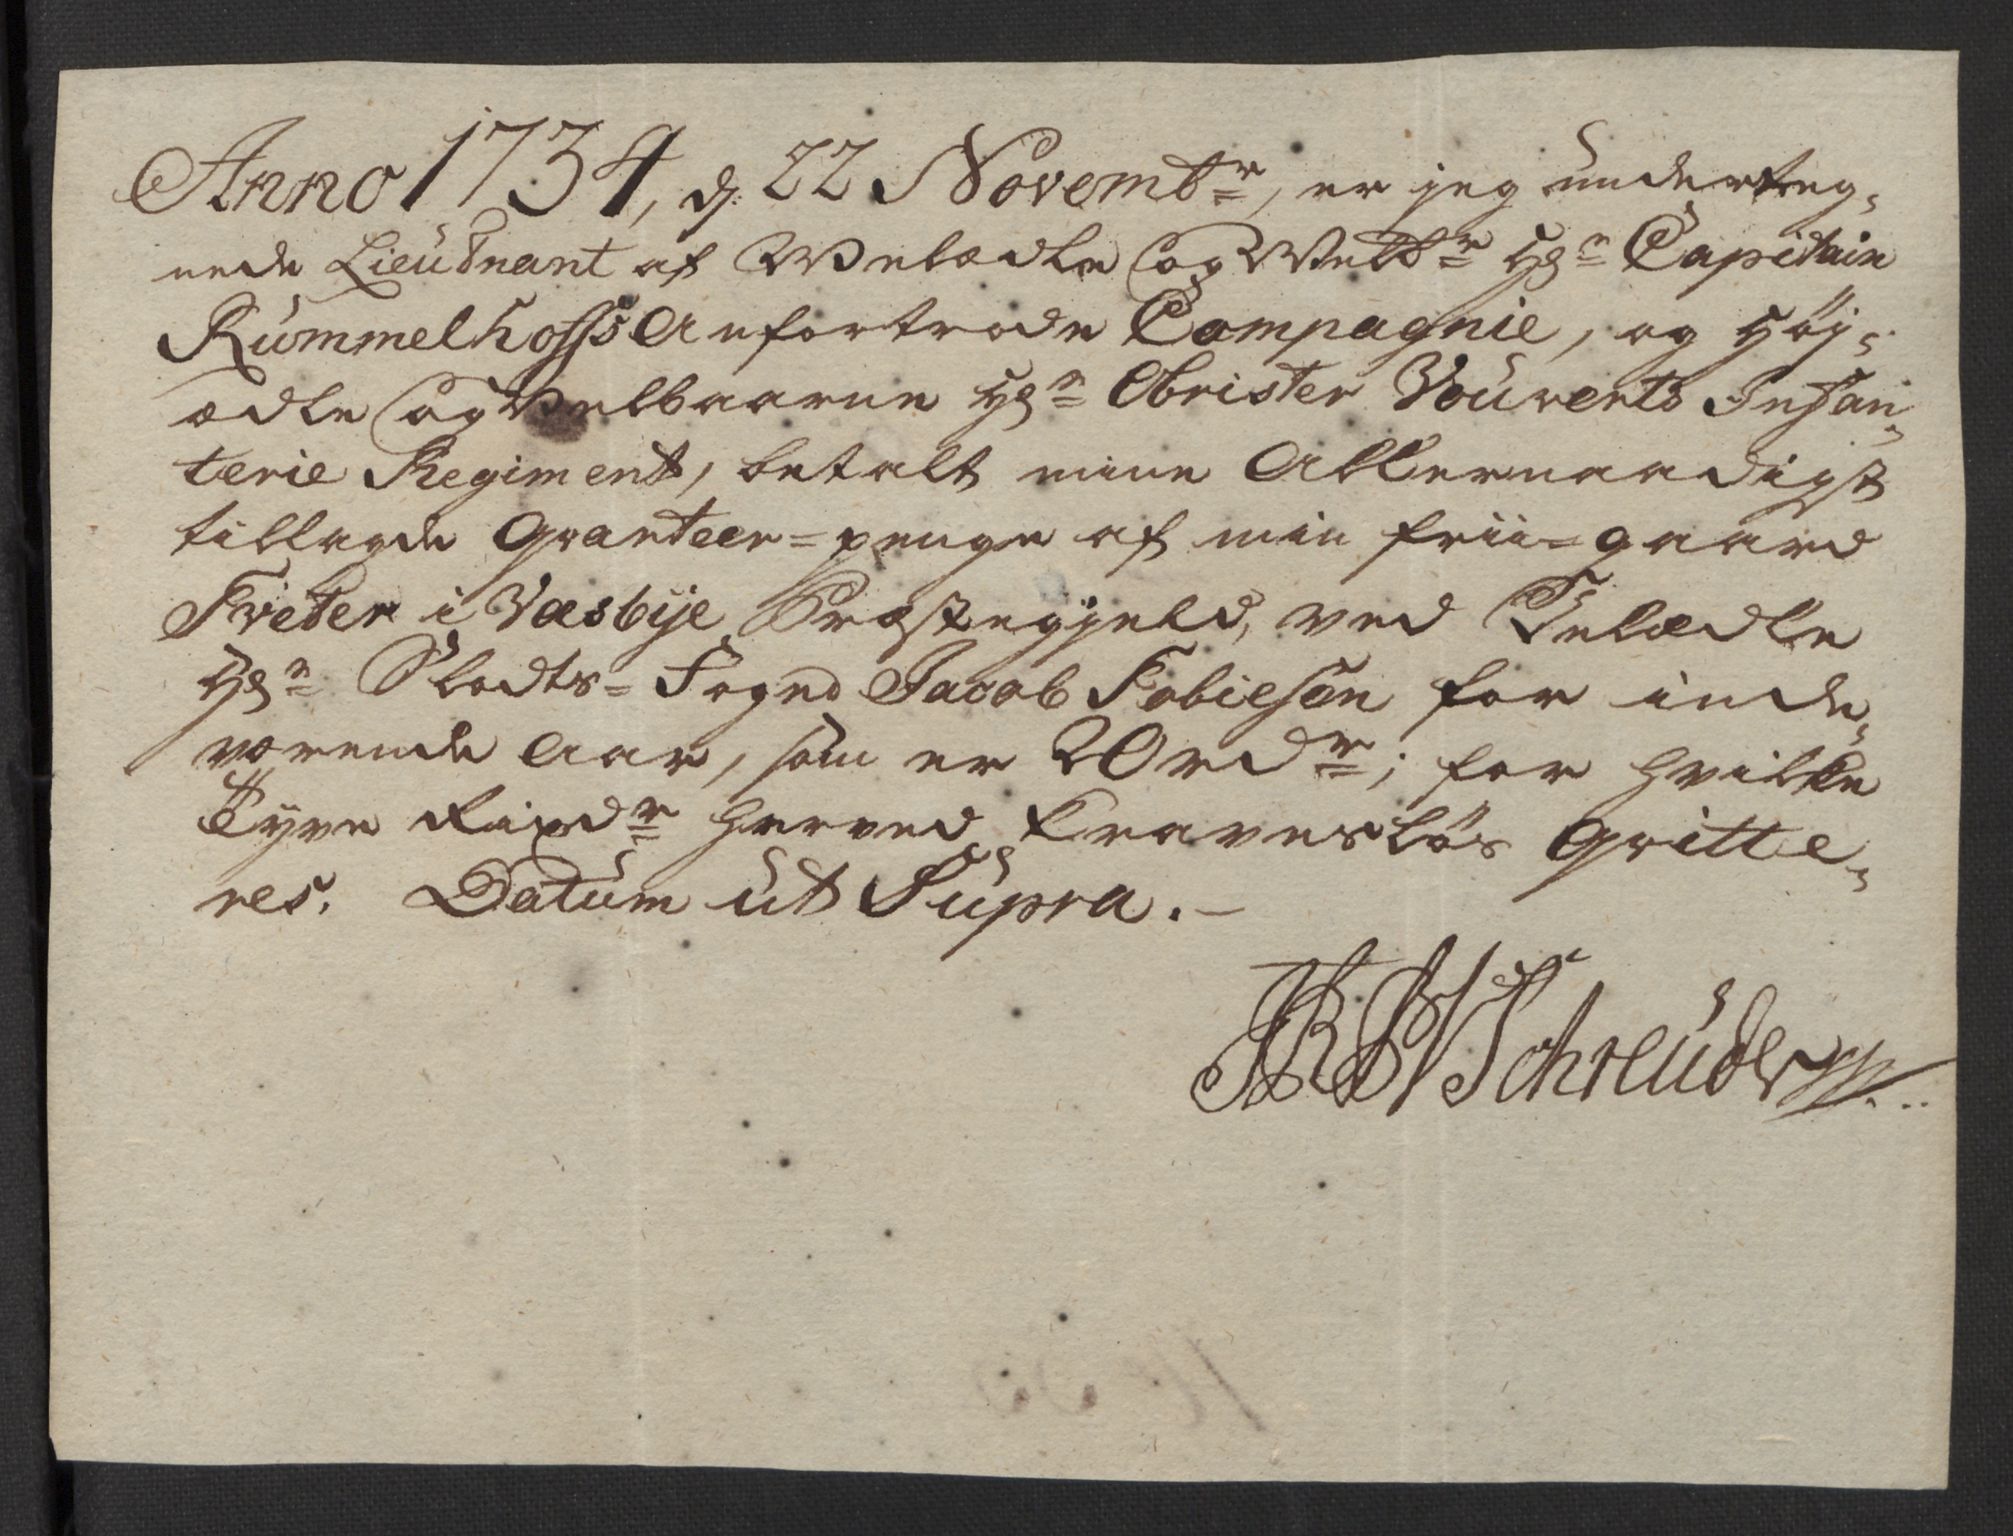 Anno 1734, d. 22 Novembr, er jeg underteg-
nede Lieutnant af Welædle og Welbr Hrn Capitain
Rummelhoffs Anfortrode Compagnie, og Höj-
ædle og Velbaarne Hrn Obrister Vouverts Infan-
terie Regiment, betalt mine Allernaadigst
tillagde Qvarteer-penge af min frii-gaard
Tveter i Væsbÿe Præstegield, ved Velædle
Hrn Slodts-Foged Jacob Tobiesen for inde-
værende Aar, som er 20 rdr; for hvilke
Tyve Rixdr herved kravesløs qvitte-
res. Datum ut Supra.-
Schreuder